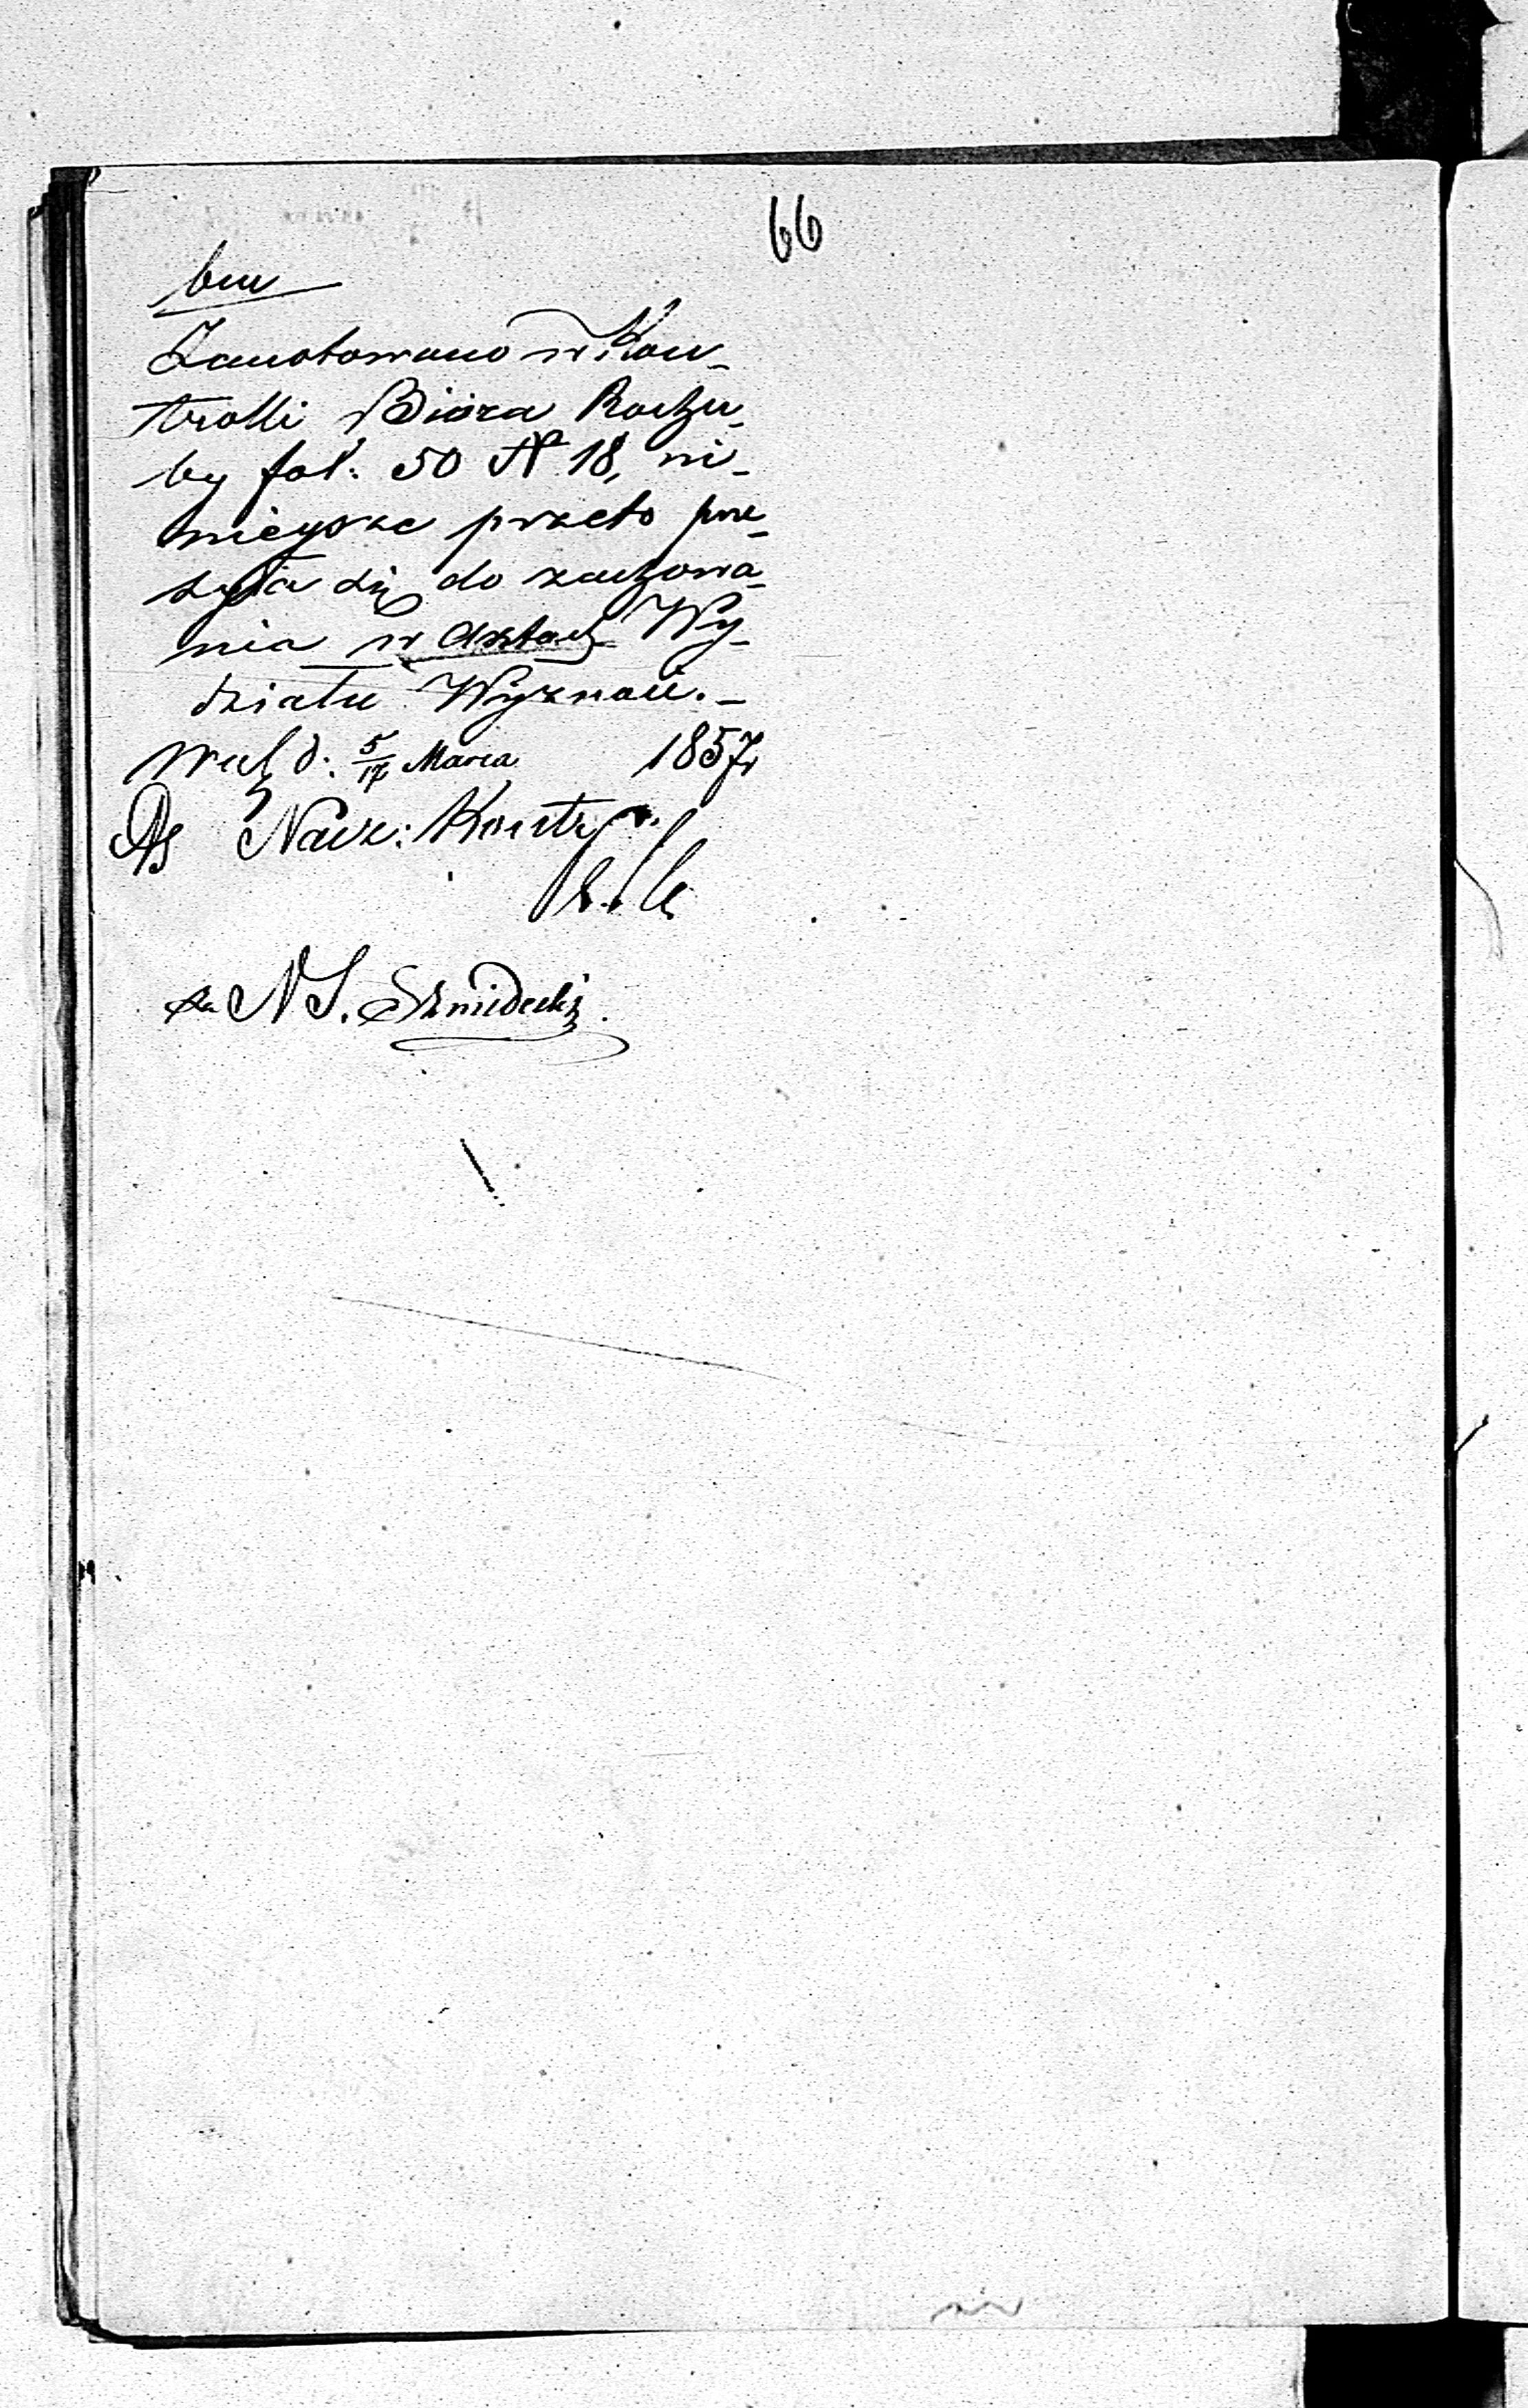 66
bm
Zanotowano w Kon-
trolli Bióra Rachu-
by fol: 50 N 18, ni-
nieysze przeto prze-
syła się do zachowa-
nia w Aktach Wy-
działu Wyznań. -
d: 5/17 Marca 1857 r
Nacz: Kontr
za N S. Szmidecki.